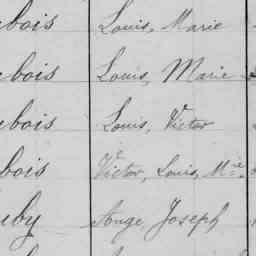 bois Louis, Marie
bois Louis, Marie
bois Louis, Vor
bois Vor, Louis, Mie
uby Ange Joseph